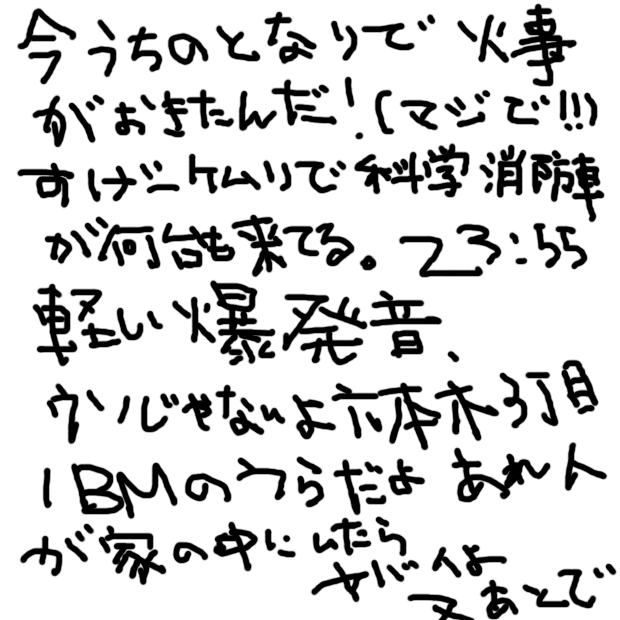 今うちのとなりで火事
がおきたんだ!(マジで!!)
すげーケムリで科学消防車
が何台も来てる。23:55
軽い爆発音、
ウソじゃないよ六本木3丁目
IBMのうらだよ あれ人
が家の中にいたら
ヤバイよ
又あとで